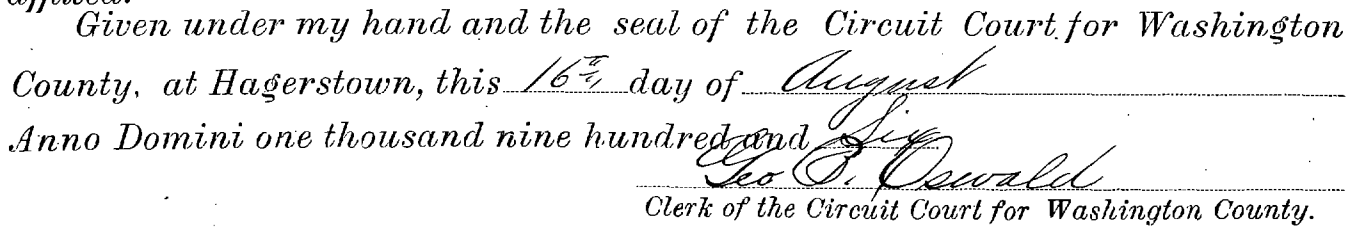 affixed.
Given under my hand and the seal of the Circuit Court for Washington
County, at Hagerstown, this 16th day of August
Anno Domini one thousand nine hundred and Six
Geo B. Oswald
Clerk of the Circuit Court for Washington County.